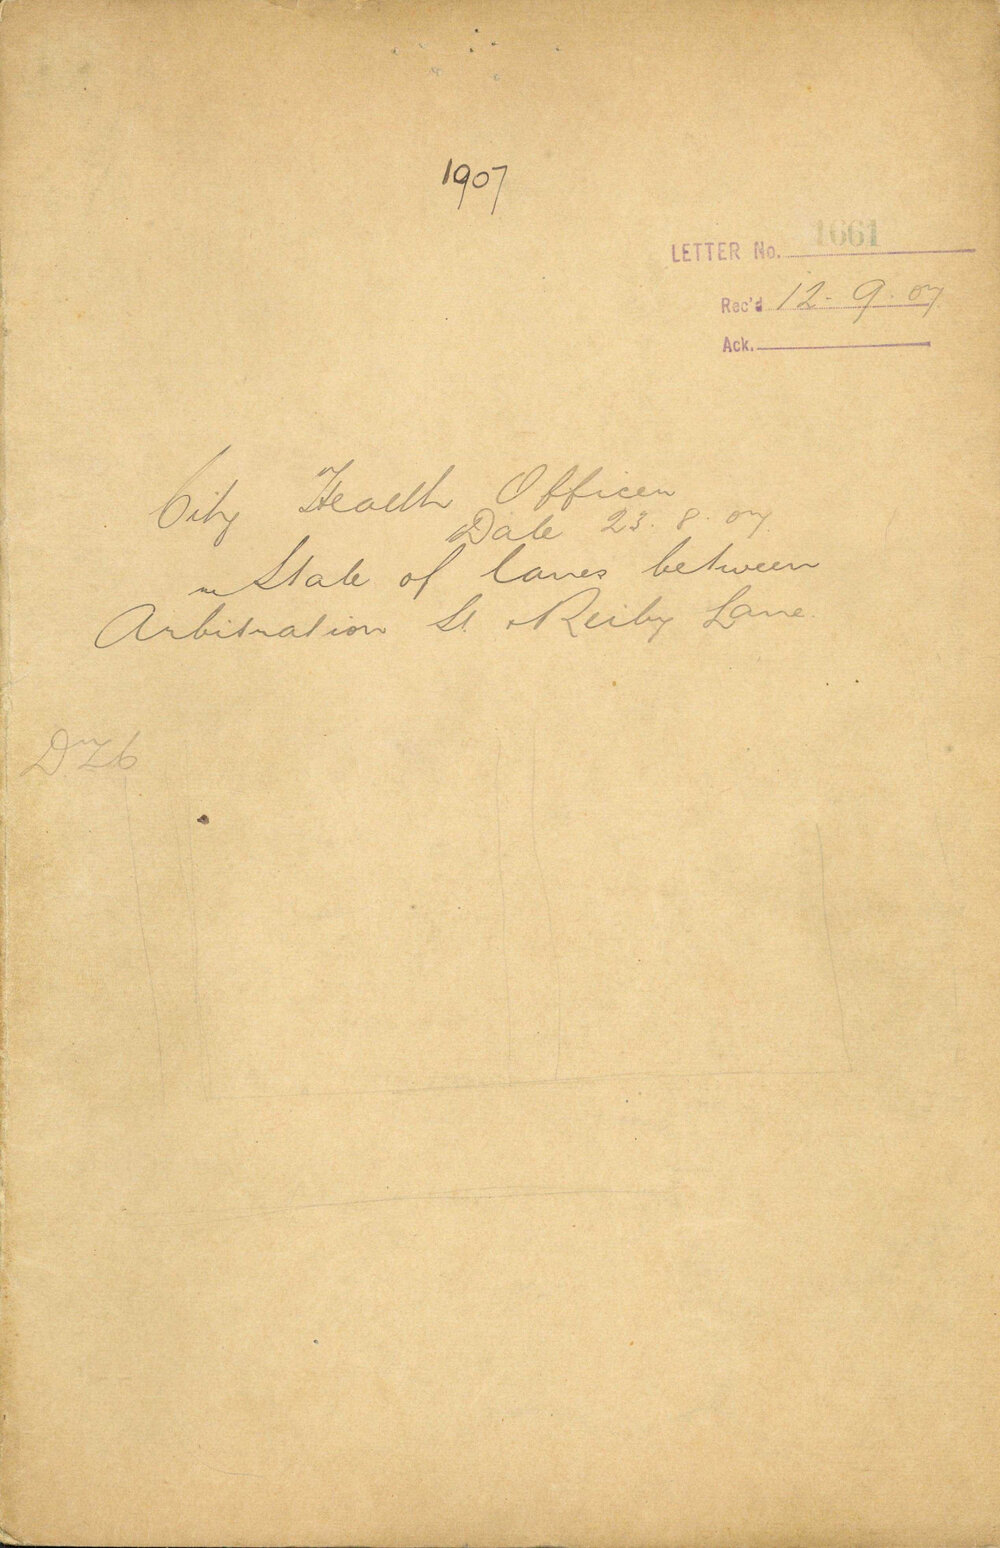 1907
LETTER No. 1661
Rec'd 12. 9. 07
Ack.
City Health Officer
Date 23. 8. 07
State of lanes between
Arbitration St & Reiby Lane